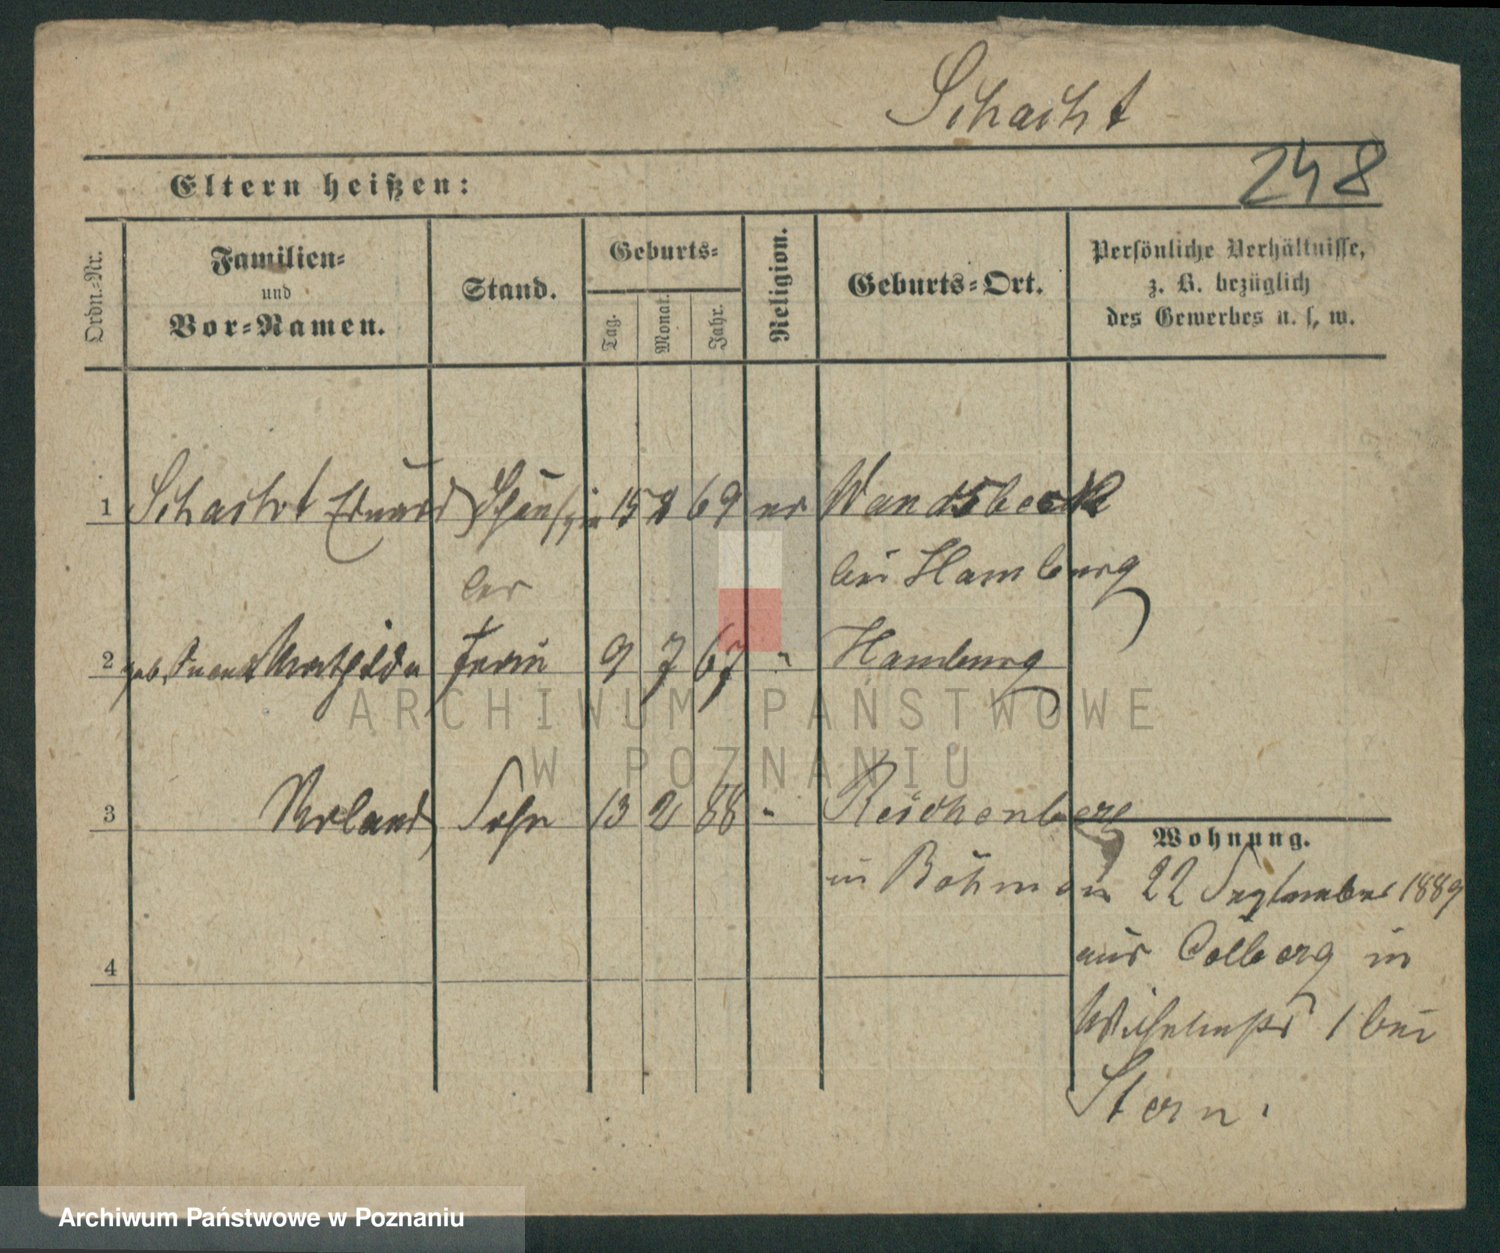 Schacht
248
Eltern heißen:
Ordn.-Nr.
Familien-
und
Vor-Namen.
Stand.
Geburts-
Tag.
Monat.
Jahr.
Religion.
Geburts-Ort.
Persönliche Verhältnisse,
z. B. bezüglich
des Gewerbes u. s. w.
1 Schacht Eduard Schauspie 15 69 Wandsbeck
ler bei Hamburg
2 geb. Mathilde Frau 9 7 67 " Hamburg
3 Roland Sohn 13 2 88 " Reichenberg
in Böhmen
4
Wohnung.
22 September 1889
aus Colberg in
Wilhelmstr 1 bei
Stern.
ARCHIWUM PAŃSTWOWE
W POZNANIU
Archiwum Państwowe w Poznaniu